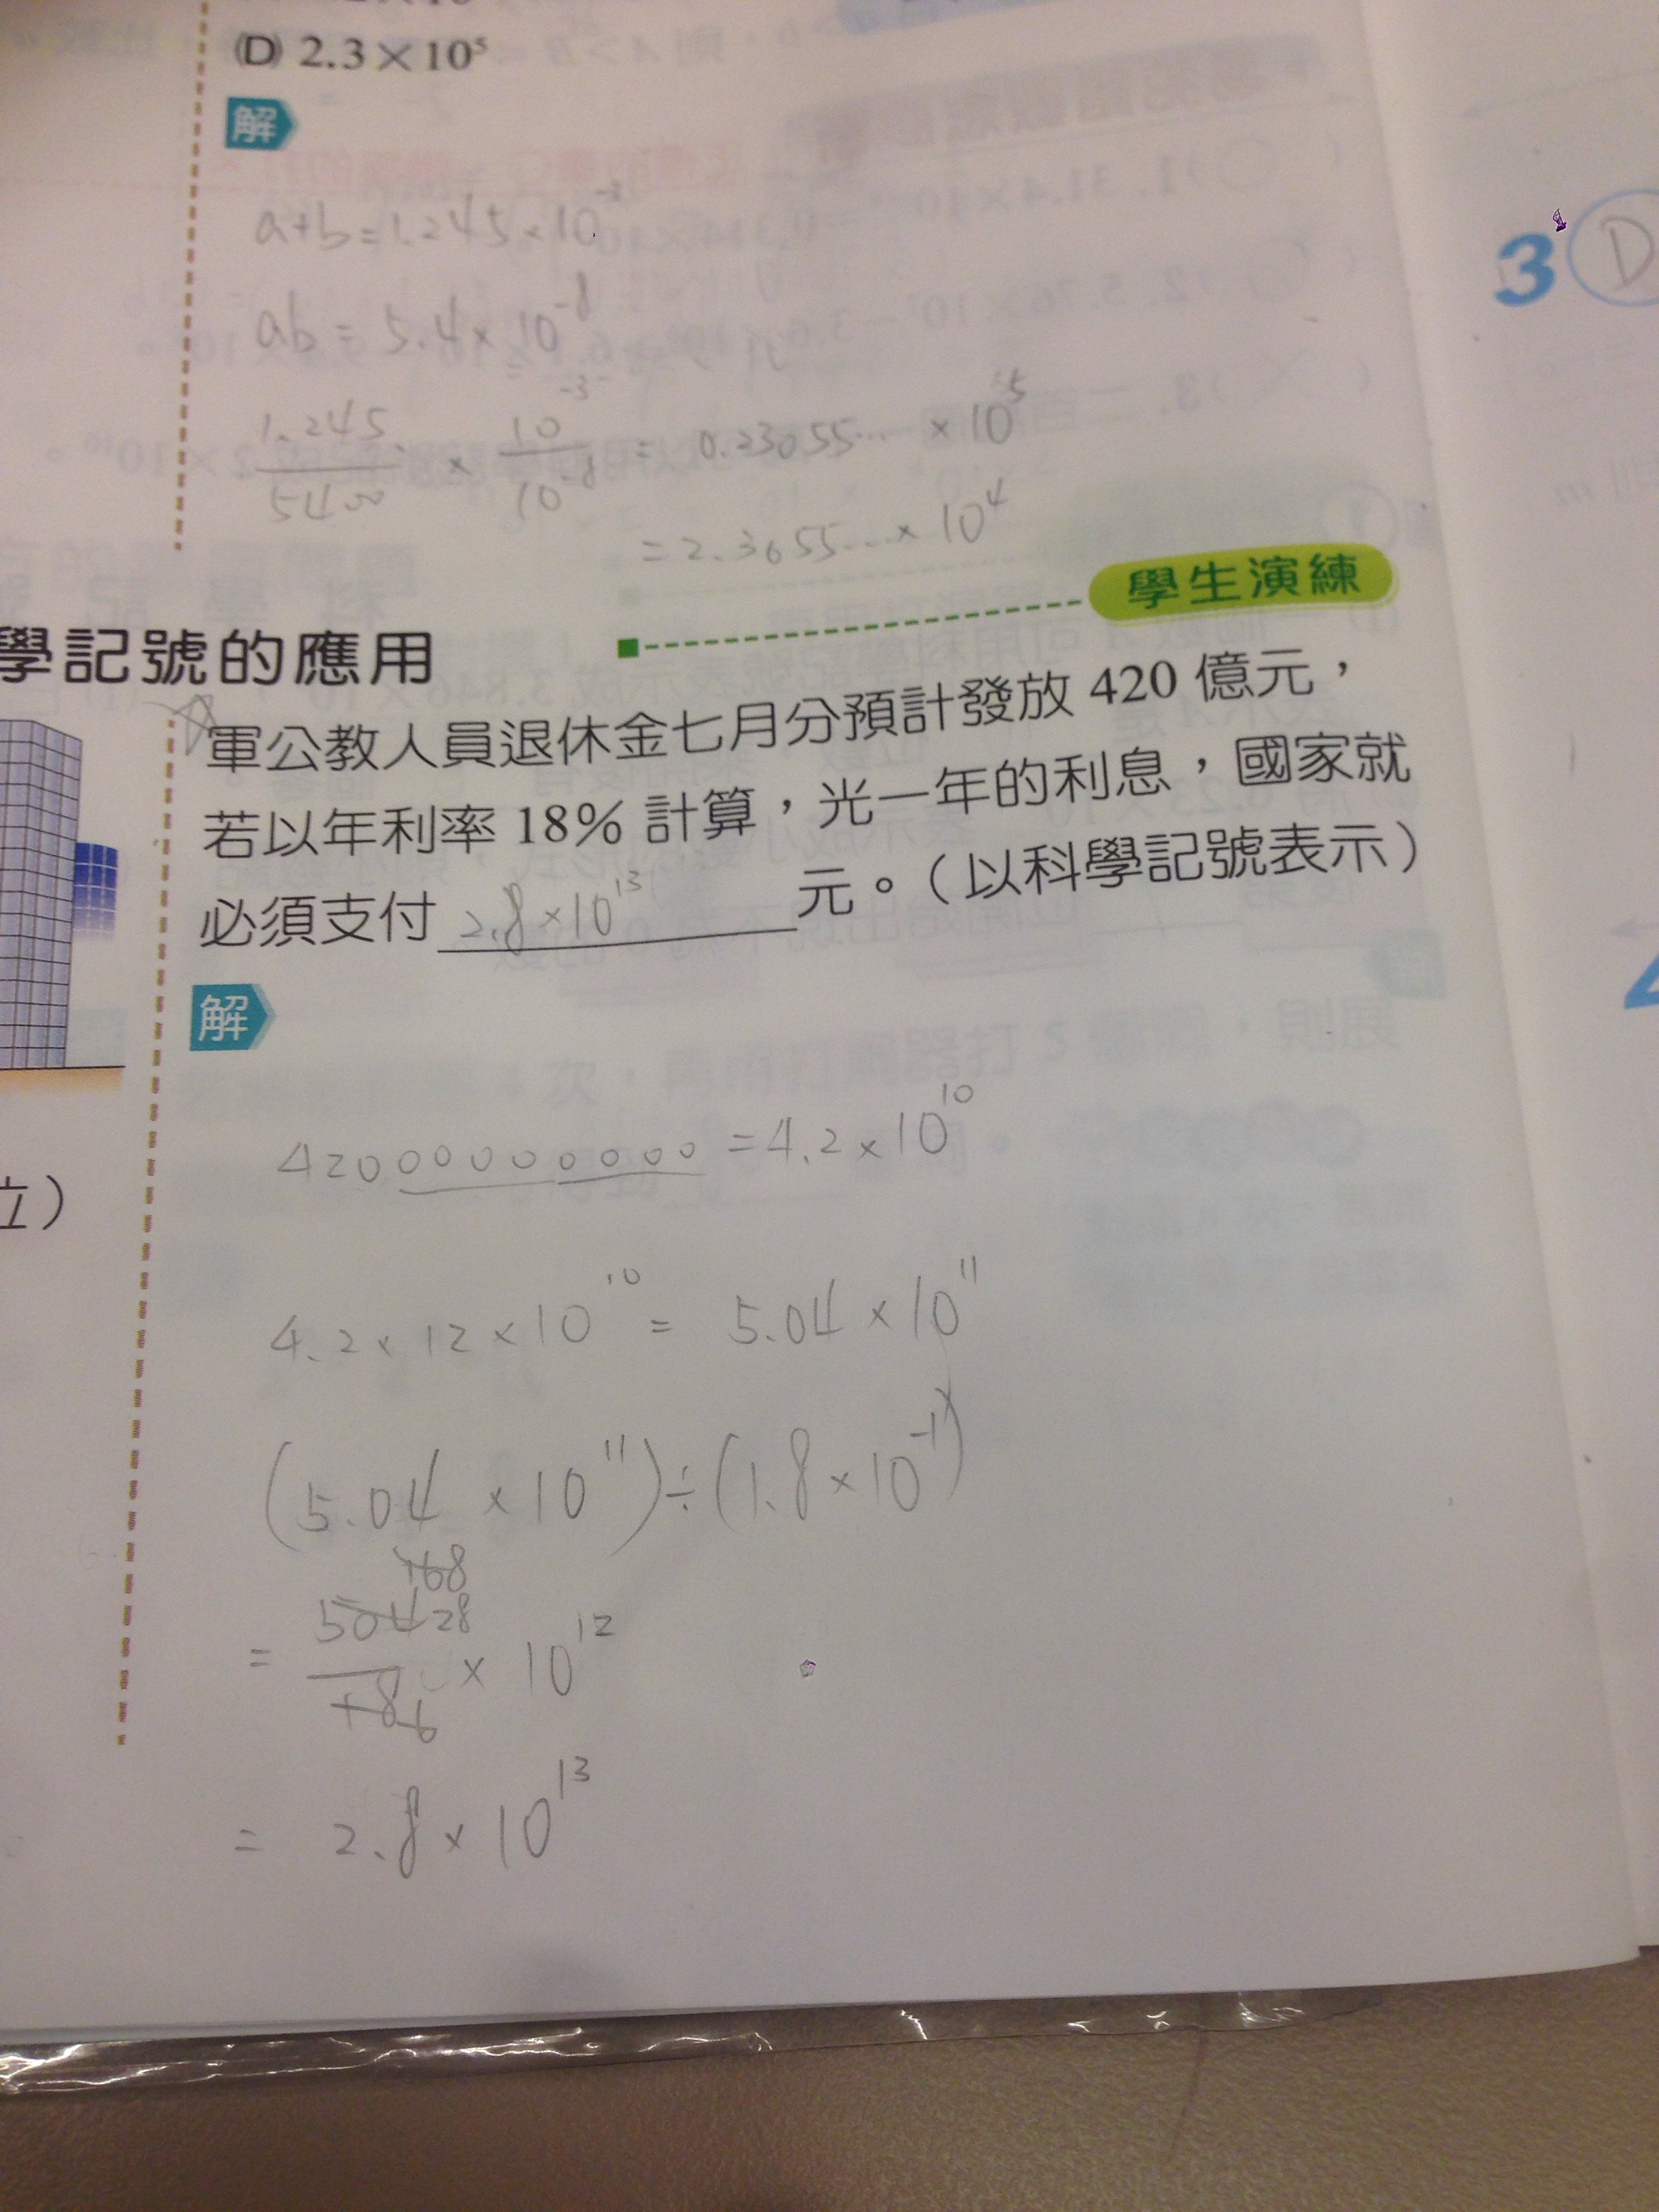 (D) 2.3×10⁵
解
a+b=1.245×10
ab = 5.4×10⁻⁸
1.245/5400 × 10⁻³/10⁻⁸ = 0.23055… ×10⁵
=2.3055…×10⁴
學生演練
學記號的應用
軍公教人員退休金七月分預計發放 420 億元，
若以年利率 18% 計算，光一年的利息，國家就
必須支付 2.8×10¹³ 元。（以科學記號表示）
解
42000000000 =4.2×10¹⁰
4.2×12×10¹⁰ = 5.04×10¹¹
(5.04 ×10¹¹)÷(1.8×10⁻¹)
168
504 28
= ×10¹²
18 6
= 2.8×10¹³
立）
3 D